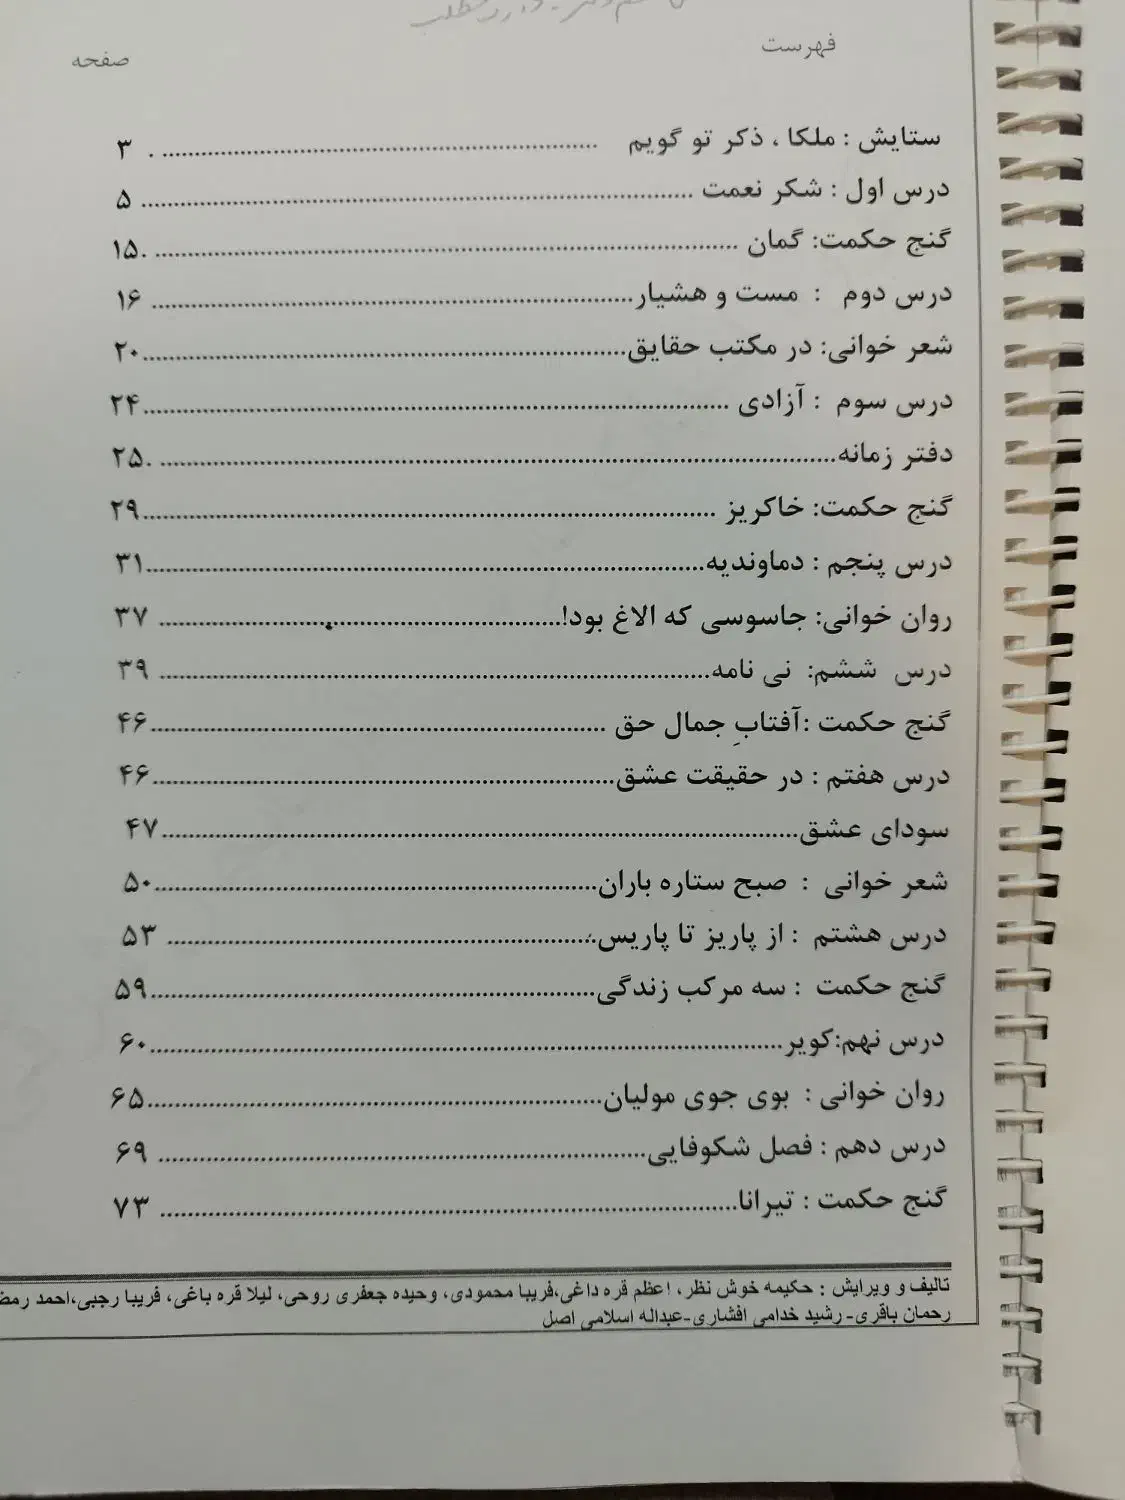 فهرست
صفحه
ستایش : ملکا ، ذکر تو گویم ................ . ۳
درس اول : شکر نعمت ................ ۵
گنج حکمت: گمان ................ .۱۵
درس دوم : مست و هشیار................ ۱۶
شعر خوانی: در مکتب حقایق................۲۰
درس سوم : آزادی ................۲۴
دفتر زمانه................ .۲۵
گنج حکمت: خاکریز ................۲۹
درس پنجم : دماوندیه................۳۱
روان خوانی: جاسوسی که الاغ بود!................ ۳۷
درس ششم: نی نامه................ ۳۹
گنج حکمت :آفتابِ جمال حق ................۴۶
درس هفتم : در حقیقت عشق................۴۶
سودای عشق................۴۷
شعر خوانی : صبح ستاره باران................۵۰
درس هشتم : از پاریز تا پاریس................ ۵۳
گنج حکمت : سه مرکب زندگی................۵۹
درس نهم:کویر................۶۰
روان خوانی : بوی جوی مولیان................۶۵
درس دهم : فصل شکوفایی................ ۶۹
گنج حکمت : تیرانا................ ۷۳
تالیف و ویرایش : حکیمه خوش نظر، اعظم قره داغی،فریبا محمودی، وحیده جعفری روحی، لیلا قره باغی، فریبا رجبی،احمد
رحمان باقری- رشید خدامی افشاری-عبداله اسلامی اصل